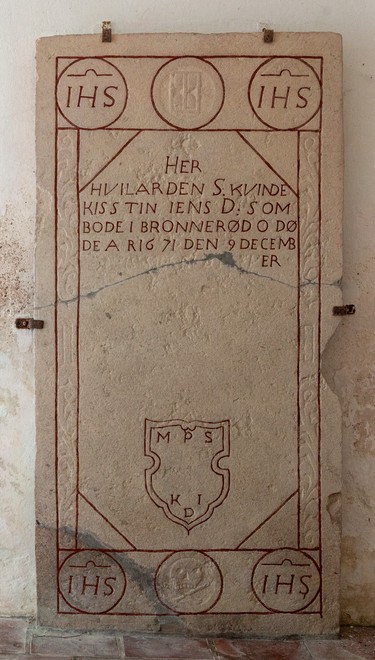 IHS IHS
HER
HVILARDEN S. KVINDE
KISSTIN IENS D: SOM
BODE I BRONNERØD O DØ
DE A R 1671 DEN 9 DECEMB
ER
M P S
K I
D
IHS IHS